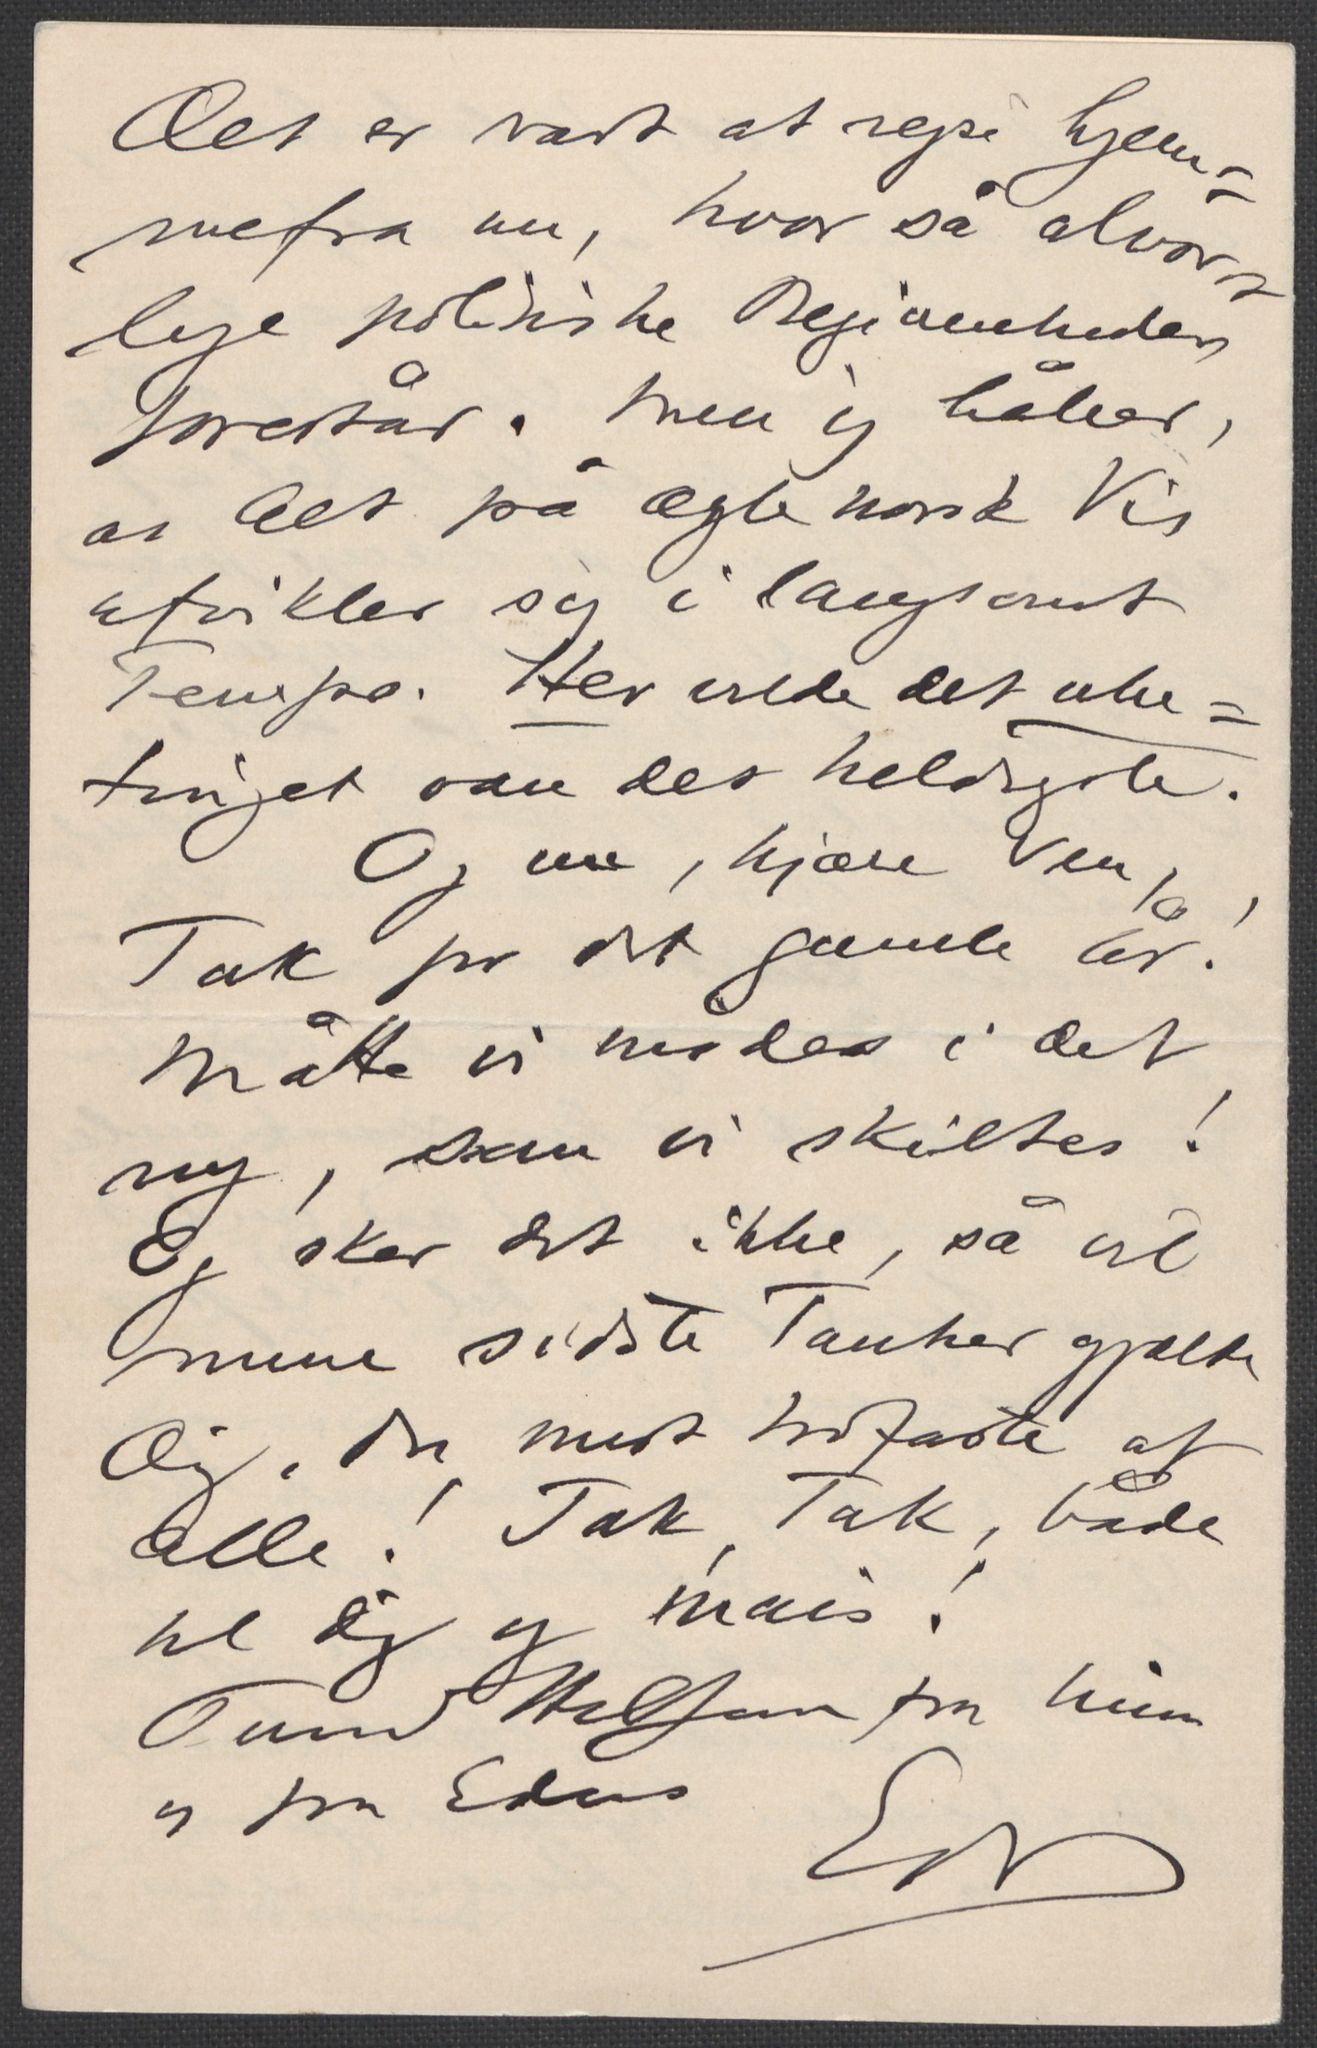 Det er rart at rejse hjem=
mefra nu, hvor så alvors
lige politiske Begivenheder
forestår. Men jeg håber,
at Alt på ægte norsk Vis
utvikler sig i langsomt
Tempo. Her vilde det ube=
tinget være det heldigste.
Og nu, kjære Ven,
Tak for det gamle År!
Måtte vi mødes i det
ny, som vi skiltes!
Og sker det ikke, så vil
mine sidste Tanker gjælde
Dig, du mest trofaste af
alle! Tak, Tak, både
til dig og Mais!
Tusind Hilsener fra Nina
og fra Eders
Edv